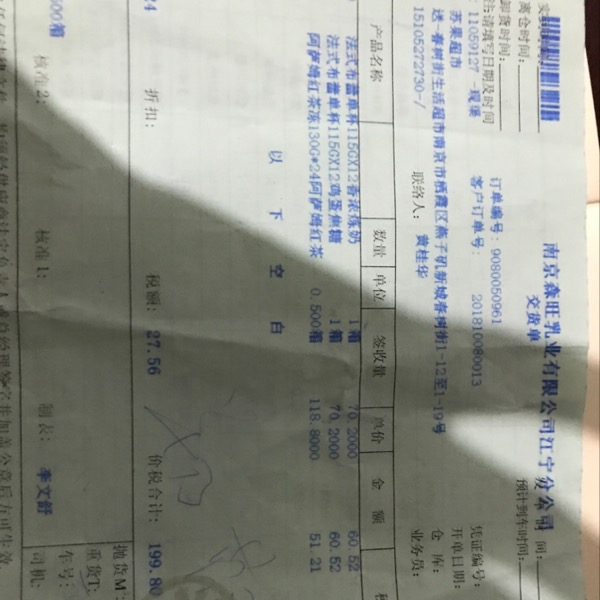 南京森旺乳业有限公司江宁分公司
交货单
离仓时间：
卸货时间：
注：请填写日及时间
间：
预计到车时间：
订单编号：9080050961
凭证编号：
11059127 -现渠
客户订单号： 201810080013
开单日期：
苏果超市
仓 库：
送-春树街生活超市南京市栖霞区燕子矶新城春树街1-12至1-19号
15105272730-/
联络人： 黄桂华
业务员：
产品名称 数量 单位 签收量 单价 金 额
法式布蕾单杯115GX12香浓炼奶 1箱 70.2000 60.52
法式布蕾单杯115GX12鸡蛋焦糖 1箱 70.2000 60.52
阿萨姆红茶冻130G*24阿萨姆红茶 0.500箱 118.8000 51.21
以 下 空 白
24 折扣： 税额： 27.56 价税合计： 199.80
抛货M
重货T:
车号：
司机：
500箱 核准2： 核准1： 制表： 李文舒